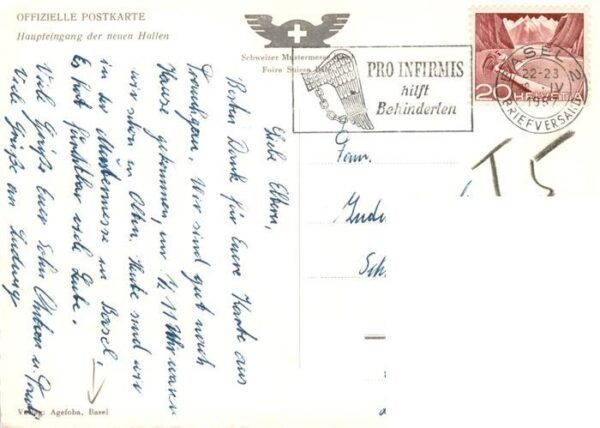 OFFIZIELLE POSTKARTE
Haupteingang der neuen Hallen
Schweizer Mustermesse
Foire Suisse
PRO INFIRMIS
hilft
Behinderten
BASEL 2
22-23
IV
BRIEFVERSAND
20 HELVETIA
T 5
Liebe Eltern,
Besten Dank für Eure Karte aus
Wir sind gut nach
Hause gekommen, um ½ 11 Uhr waren
wir schon in Olten. Heute sind wir
in der Mustermesse in Basel.
Es hat furchtbar viele Leute.
Viele Grüße Euer Sohn
Viele Grüße an Ludwig
Fam.
Sch
Verlag: Agefoba, Basel